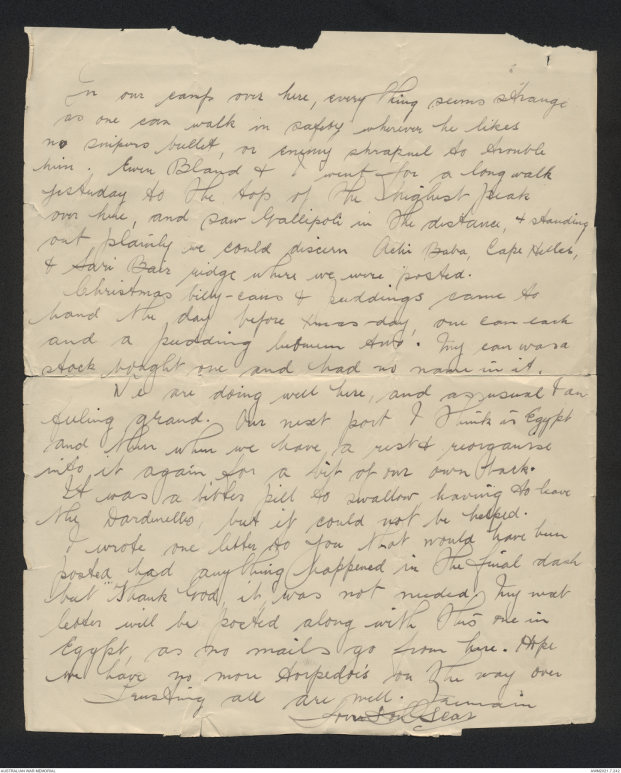 In our camp over here, every thing seems strange
as one can walk in safety wherever he likes
no snipers bullet, or enemy shrapnel to trouble
him. Ewen Bland & I went for a long walk
yesterday to the top of the highest peak
over here, and saw Gallipoli in the distance, & standing
out plainly we could discern Achi Baba, Cape Helles,
& Sari Bair ridge where we were posted.
Christmas billy-cans & puddings came to
hand the day before Xmas-day, one can each
and a pudding between two. My can was a
stock bought one and had no name in it.
We are doing well here, and as usual I am
feeling grand. Our next port I think is Egypt
and then when we have a rest & reorganise
into it again for a bit of our own back.
It was a bitter pill to swallow having to leave
the Dardenelles, but it could not be helped.
I wrote one letter to you that would have been
posted had anything happened in the final dash
but "Thank God" it was not needed. My next
letter will be posted along with this one in
Egypt, as no mails go from here. Hope
we have no more torpedoes on the way over
Trusting all are well. I remain
Your
AUSTRALIAN WAR MEMORIAL